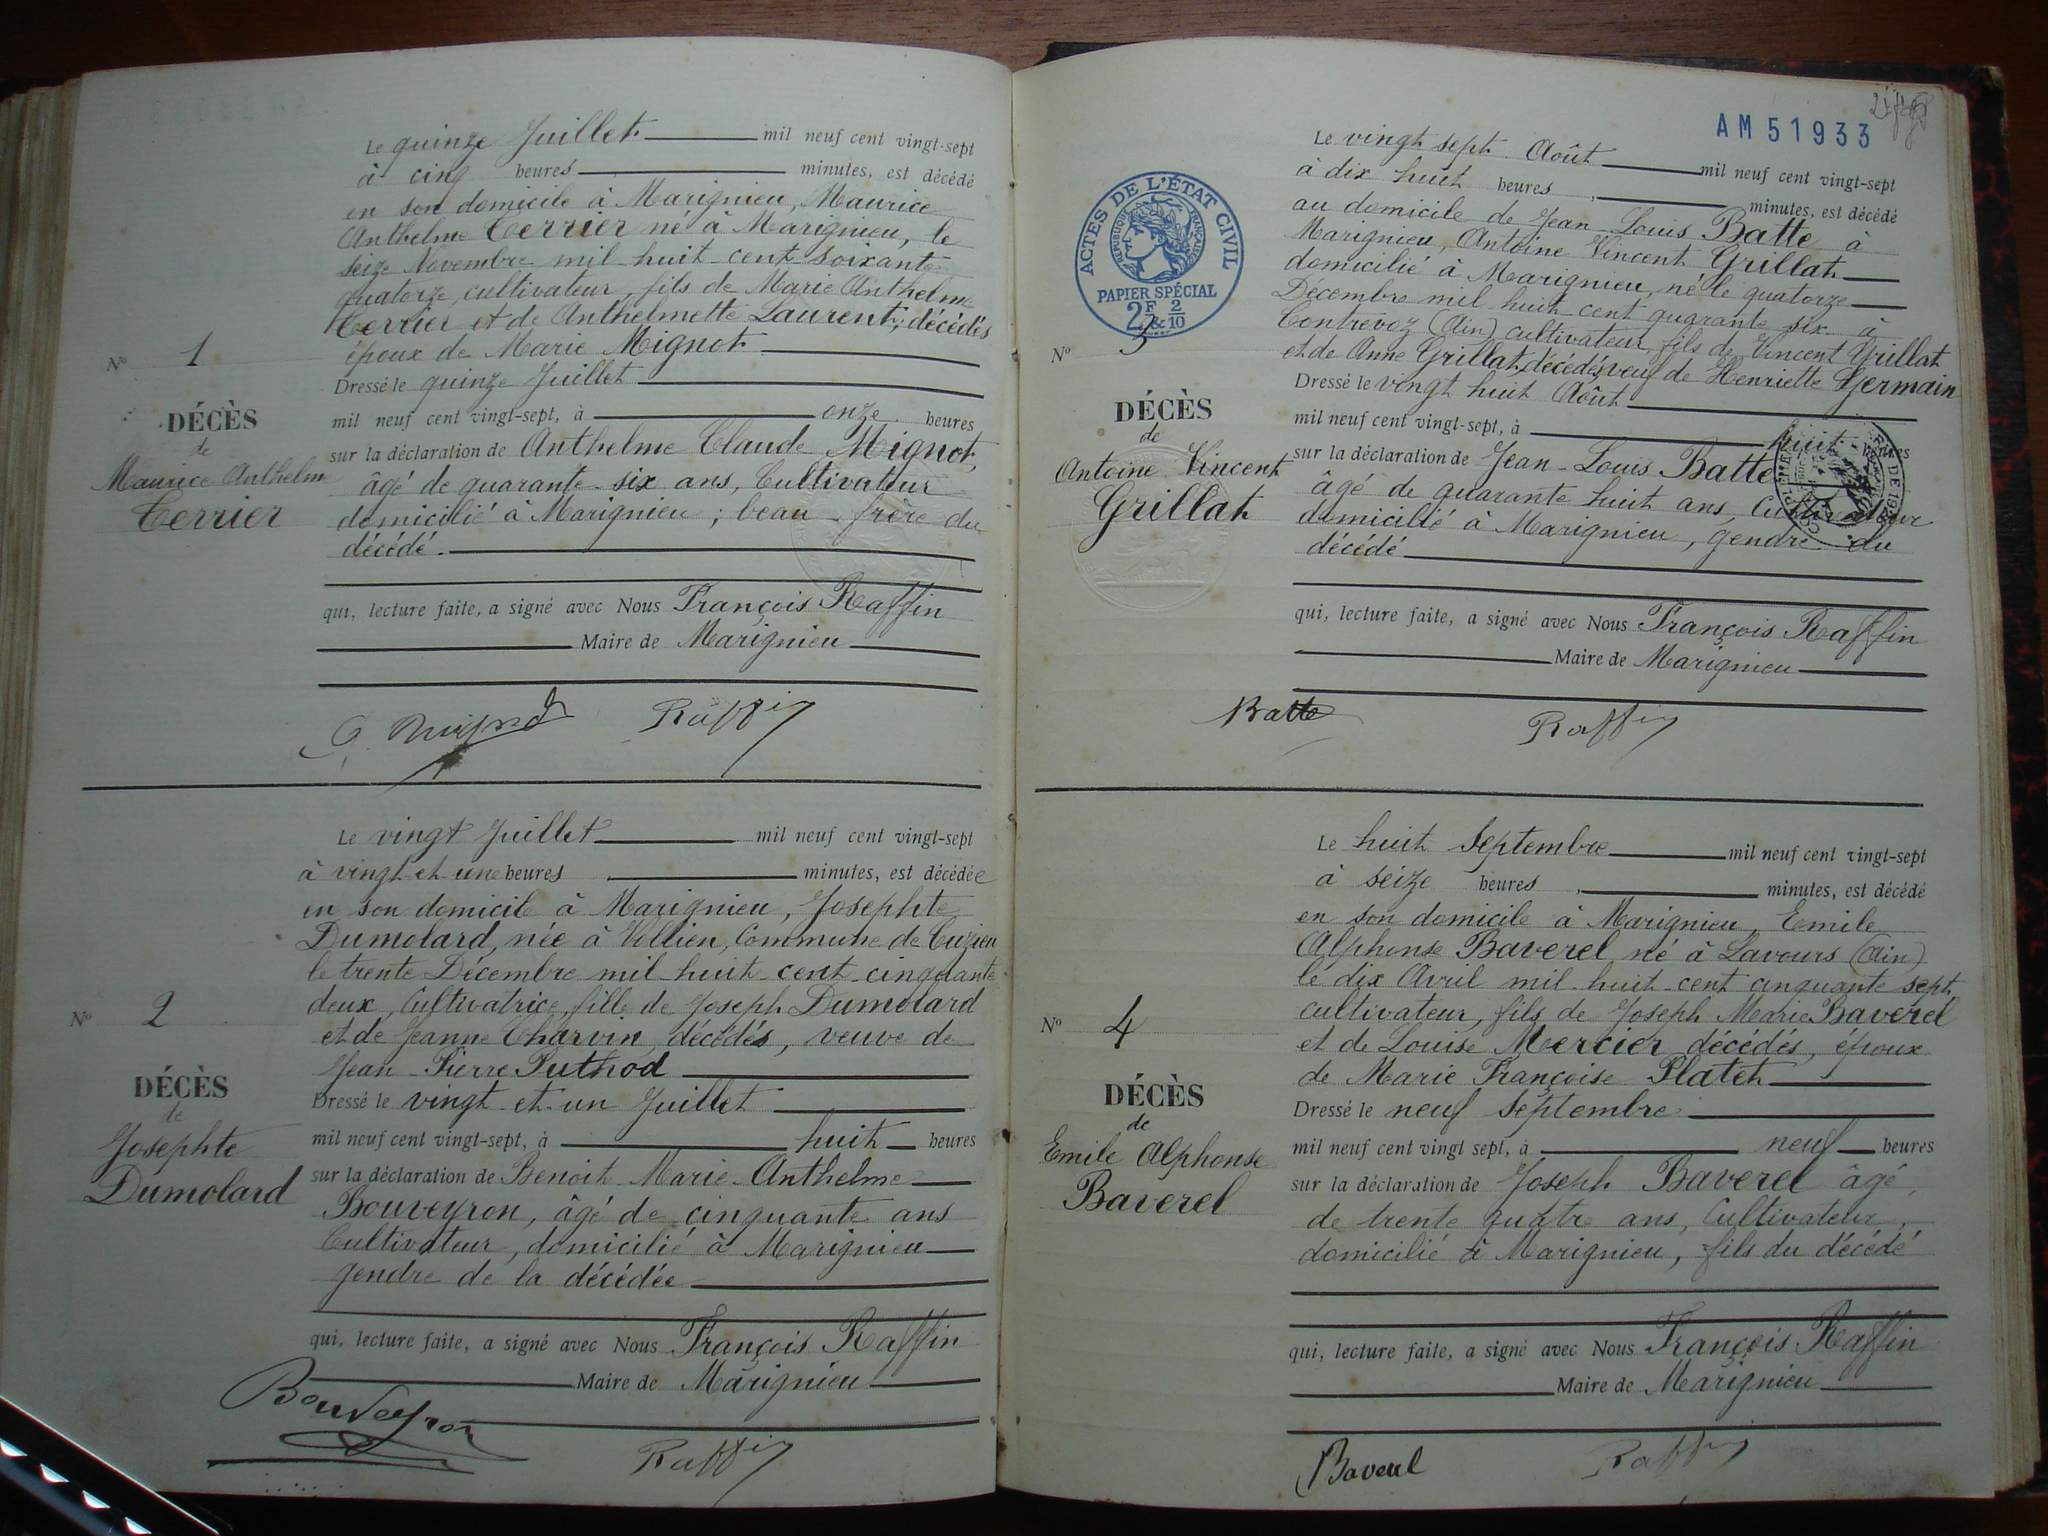 Le quinze Juillet mil neuf cent vingt-sept
à cinq heures minutes, est décédé
en son domicile à Marignieu, Maurice
Anthelme Terrier né à Marignieu, le
seize Novembre mil huit cent soixante
quatorze, cultivateur, fils de Marie Anthelme
Terrier et de Anthelmette Laurent, décédés
époux de Marie Mignot
Nº 1
Dressé le quinze Juillet
DÉCÈS
de
Maurice Anthelme
Terrier
mil neuf cent vingt-sept, à onze heures
sur la déclaration de Anthelme Claude Mignot,
âgé de quarante-six ans, Cultivateur
domicilié à Marignieu ; beau-frère du
décédé.
qui, lecture faite, a signé avec Nous François Raffin
Maire de Marignieu
Raffin
Le vingt Juillet mil neuf cent vingt-sept
à vingt et une heures minutes, est décédée
en son domicile à Marignieu, Josephte
Dumolard, née à Vollien, Commune de Cuzieu
le trente Décembre mil huit cent cinquante
deux, Cultivatrice, fille de Joseph Dumolard
et de Jeanne Charvin, décédés, veuve de
Jean-Pierre Puthod
Nº 2
DÉCÈS
de
Josephte
Dumolard
Dressé le vingt et un Juillet
mil neuf cent vingt-sept, à huit heures
sur la déclaration de Benoit Marie-Anthelme
Bouveyron, âgé de cinquante ans
Cultivateur, domicilié à Marignieu
gendre de la décédée
qui, lecture faite, a signé avec Nous François Raffin
Maire de Marignieu
Bouveyron
Raffin
AM51933
ACTES DE L'ÉTAT CIVIL
RÉPUBLIQUE FRANÇAISE
PAPIER SPÉCIAL
2F & 2/10
Le vingt sept Août mil neuf cent vingt-sept
à dix huit heures minutes, est décédé
au domicile de Jean-Louis Batte à
Marignieu, Antoine Vincent Grillat
domicilié à Marignieu, né le quatorze
Décembre mil huit cent quarante six à
Contrevoz (Ain) cultivateur, fils de Vincent Grillat
et de Anne Grillat, décédés, veuf de Henriette Germain
Nº 3
Dressé le vingt huit Août
DÉCÈS
de
Antoine Vincent
Grillat
mil neuf cent vingt-sept, à huit heures
sur la déclaration de Jean-Louis Batte
âgé de quarante huit ans, Cultivateur
domicilié à Marignieu, gendre du
décédé
qui, lecture faite, a signé avec Nous François Raffin
Maire de Marignieu
Batte
Raffin
Le huit Septembre mil neuf cent vingt-sept
à seize heures minutes, est décédé
en son domicile à Marignieu Emile
Alphonse Baverel, né à Lavours (Ain)
le dix Avril mil huit cent cinquante sept
cultivateur, fils de Joseph Marie Baverel
et de Louise Mercier décédés, époux
de Marie Françoise Platet
Nº 4
DÉCÈS
de
Emile Alphonse
Baverel
Dressé le neuf Septembre
mil neuf cent vingt sept, à neuf heures
sur la déclaration de Joseph Baverel âgé
de trente quatre ans, Cultivateur,
domicilié à Marignieu, fils du décédé
qui, lecture faite, a signé avec Nous François Raffin
Maire de Marignieu
Baverel
Raffin